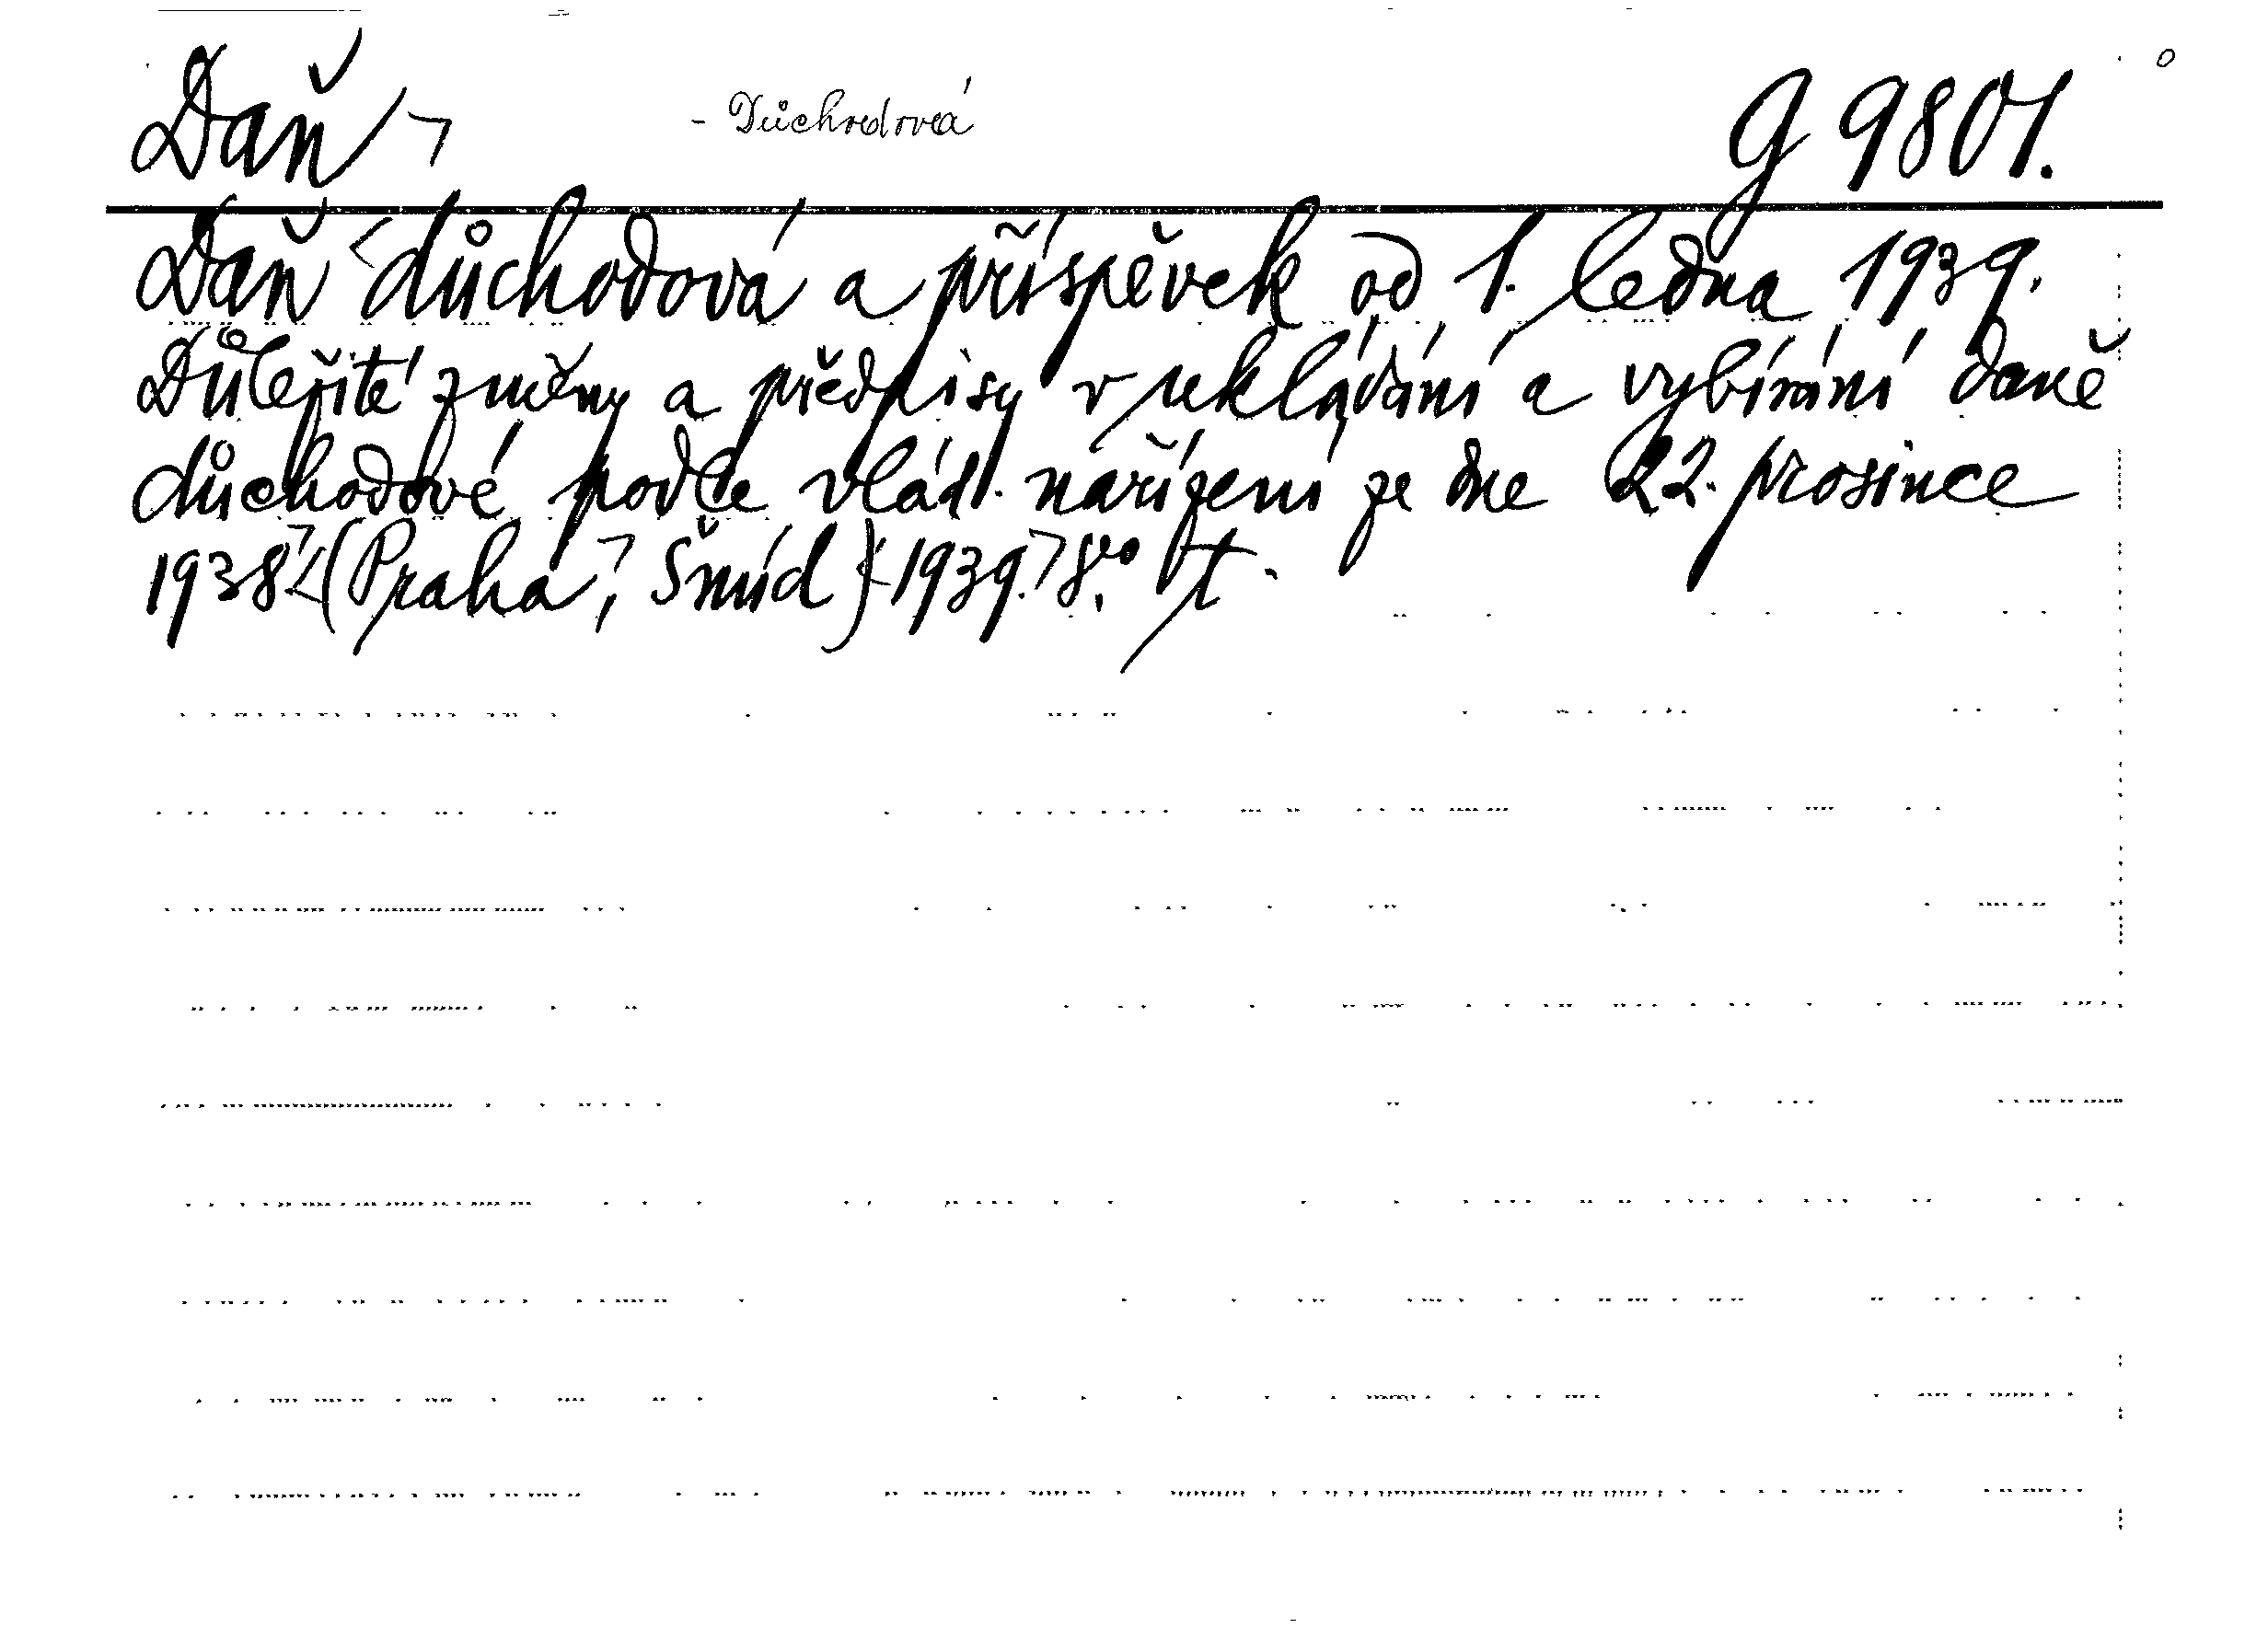 Daň - Důchodová g 9801.
Daň důchodová a příspěvek od 1. ledna 1939.
Důležité změny a předpisy v ukládání a vybírání daně
důchodové podle vlád. nařízení ze dne 22. prosince
1938. (Praha, Šmíd) 1939. 8vo